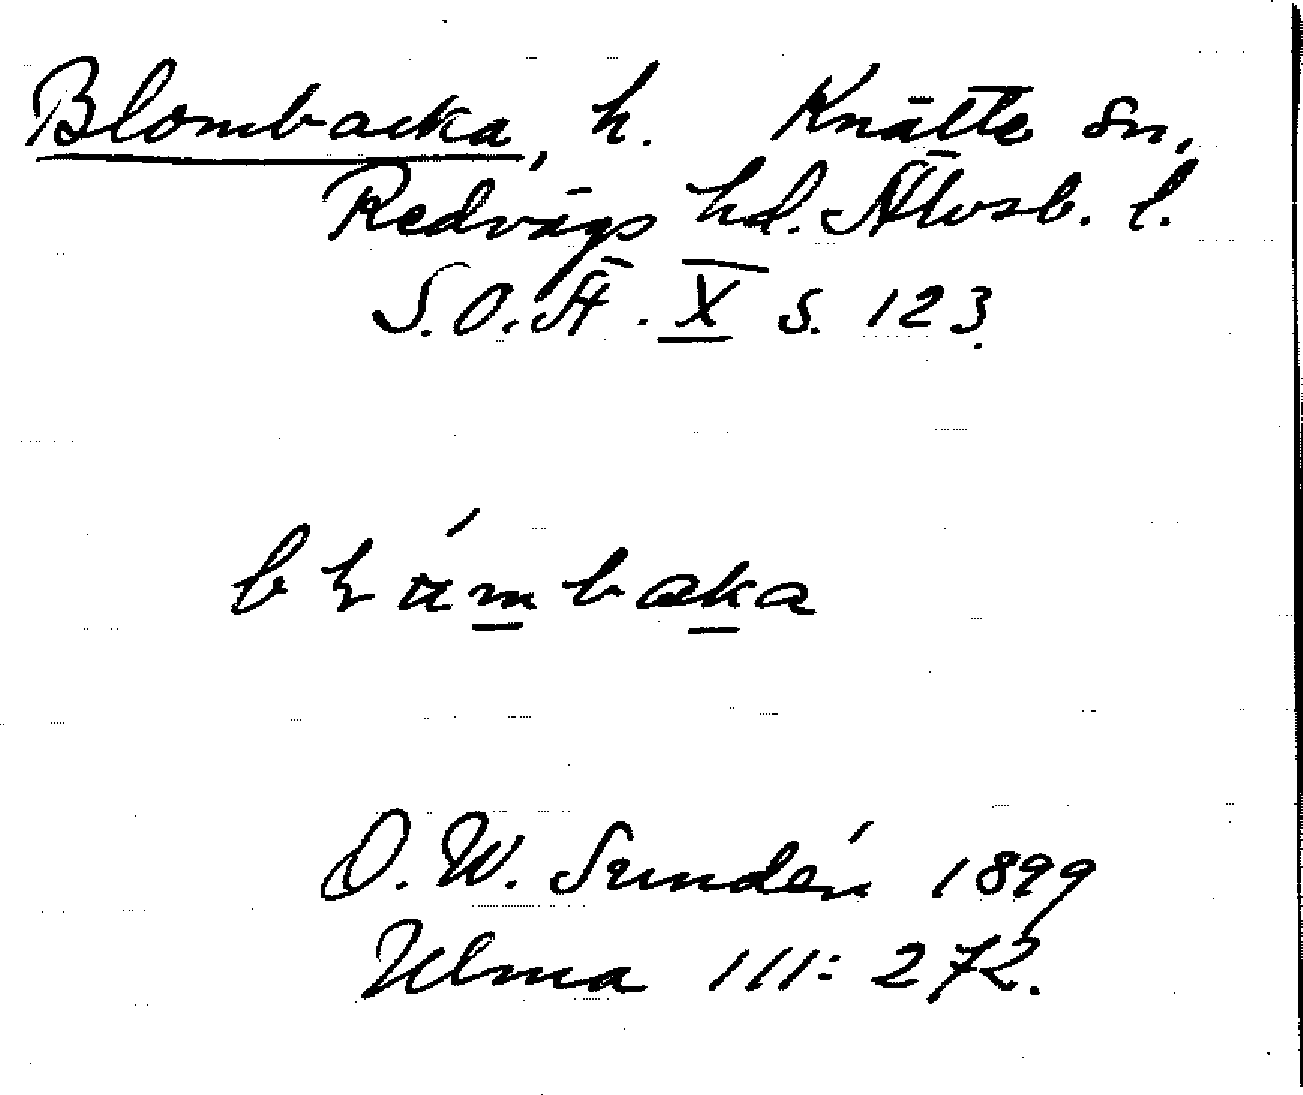 Blombacka, h. Knätte sn,
Redvägs hd. Älvsb. l.
S.O.Ä. X s. 123.
O. W. Sundén 1899
Ulma 111:272.